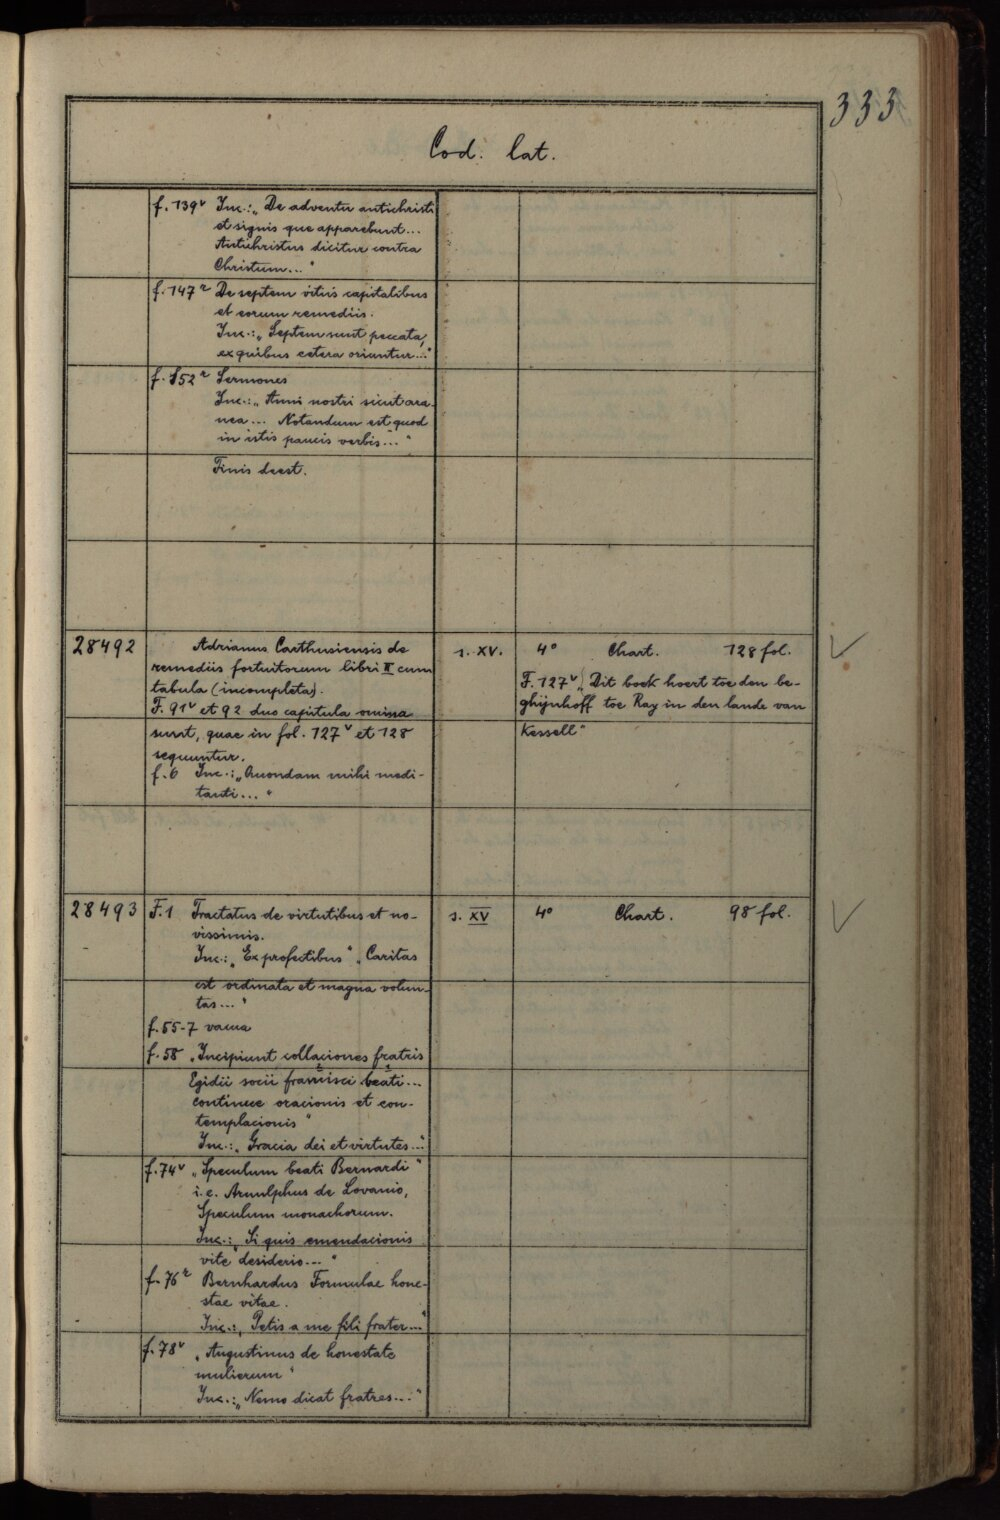 333
Cod. lat.
f. 139v Inc.: „De adventu antichristi
et signis que apparebunt...
Antichristus dicitur contra
Christum..."
f. 147r De septem vitiis capitalibus
et eorum remediis.
Inc.: „Septem sunt peccata,
ex quibus cetera oriuntur..."
f. 152r Sermones
Inc.: „Anni nostri sicut ara-
nea... Notandum est quod
in istis paucis verbis..."
Finis deest.
28492 Adrianus Carthusiensis de s. XV. 4° Chart. 128 fol.
remediis fortuitorum libri II cum
tabula (incompleta).
F. 91v et 92 duo capitula omissa
sunt, quae in fol. 127v et 128
sequuntur.
f. 6 Inc.: „Quondam mihi medi-
tanti..."
F. 127v „Dit boek hoert toe den be-
ghijnhoff toe Ray in den lande van
Kessell"
28493 F. 1 Tractatus de virtutibus et no- s. XV 4° Chart. 98 fol.
vissimis.
Inc.: „Ex profectibus" „Caritas
est ordinata et magna volun-
tas..."
f. 55-7 vacua
f. 58 „Incipiunt collaciones fratris
Egidii socii francisci beati...
continue oracionis et con-
templacionis"
Inc.: „Gracia dei et virtutes..."
f. 74v „Speculum beati Bernardi"
i. e. Arnulphus de Lovanio,
Speculum monachorum.
Inc.: „Si quis emendacionis
vite desiderio..."
f. 76r Bernhardus Formulae hone-
stae vitae.
Inc.: „Petis a me fili frater..."
f. 78v „Augustinus de honestate
mulierum"
Inc.: „Nemo dicat fratres..."